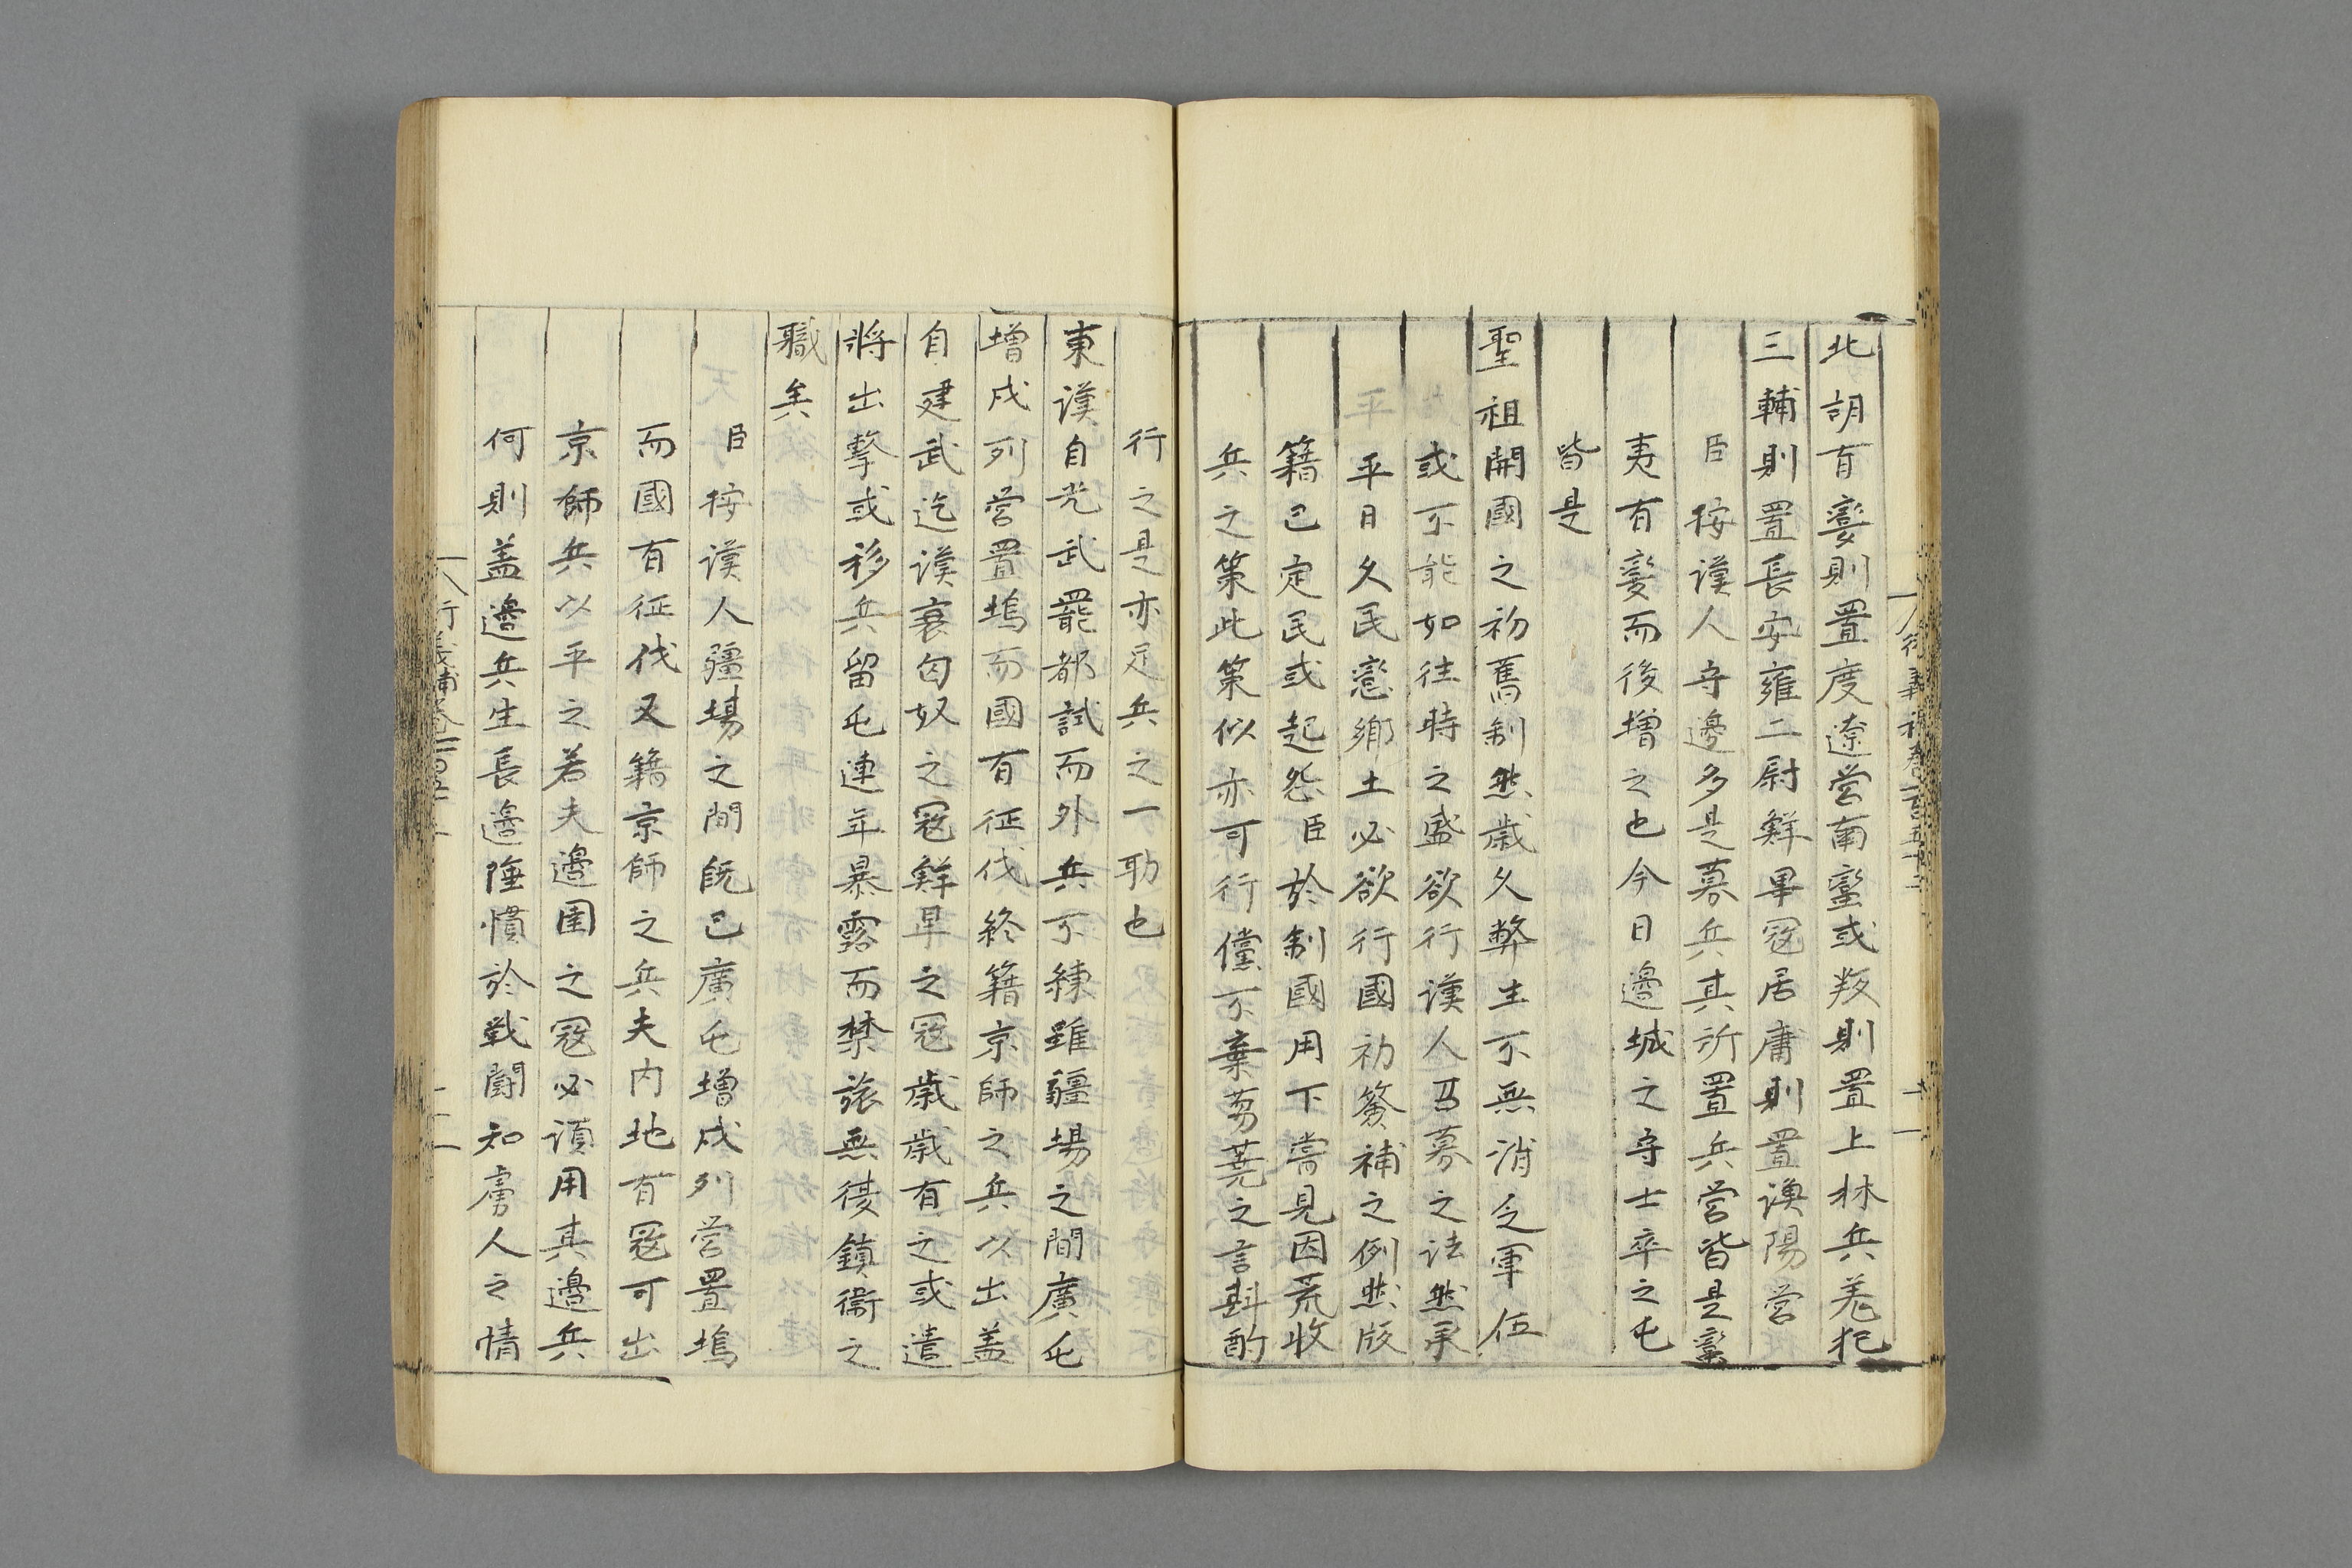 北胡有變則置度遼営南蠻或叛則置上林兵羌犯
三輔則置長安雍二尉鮮畢寇居庸則置漁陽営
臣按漢人守邊多是募兵其所置兵営皆是蠻
夷有變而後增之也今日邊城之守士卒之屯
皆是
聖祖開國之初舊制然歲久弊生不無消乏軍伍
或不能如往時之盛欲行漢人召募之法然承
平日久民戀鄉土必欲行國初簽補之例然版
籍已定民或起怨臣於制國用下嘗見因荒收
兵之策此策似亦可行儻不棄芻蕘之言斟酌
行之是亦足兵之一助也
東漢自光武罷都試而外兵不練雖疆場之間廣屯
增戍列営置塢而國有征伐終籍京師之兵以出盖
自建武迄漢衰匈奴之寇鮮卑之寇歲歲有之或遣
將出擊或移兵留屯連年暴露而禁旅無復鎮衞之
職矣
臣按漢人疆場之間既已廣屯增戍列営置塢
而國有征伐又籍京師之兵夫内地有寇可出
京師兵以平之若夫邊圉之寇必須用其邊兵
何則盖邊兵生長邊陲慣於戦闘知虜人之情